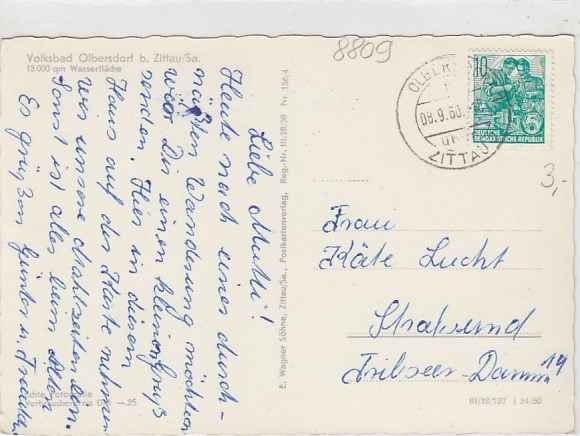 Volksbad Olbersdorf b. Zittau/Sa.
13 000 qm Wasserfläche
8809
10
DEUTSCHE
DEMOKRATISCHE REPUBLIK
08.9.60
ZITTAU
3,-
Liebe Mutti!
Heute nach einer durch-
näßten Wanderung möchten
wir Dir einen kleinen Gruß
senden. Hier in diesem
Haus auf der Karte nehmen
wir unsere Mahlzeiten ein.
Sonst ist alles beim Alten
Es grüßen Günter u.
Frau
Käte Lucht
Stralsund
Tribseer-Damm 19
E. Wagner Söhne, Zittau/Sa., Postkartenverlag, Reg.-Nr. III/28/38 Nr. 1564
Echte Fotografie
Verbraucherpreis DM —.25
III/18/197 | 24/60